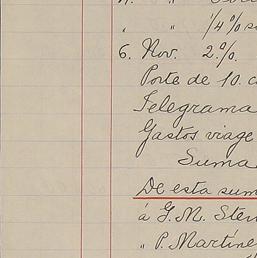 " " 1/4%
6. Nov. 2%.
Porte de 10
Telegrama
Gastos viage
Suma
De esta sum
á G. M. Sten
" P. Martíne